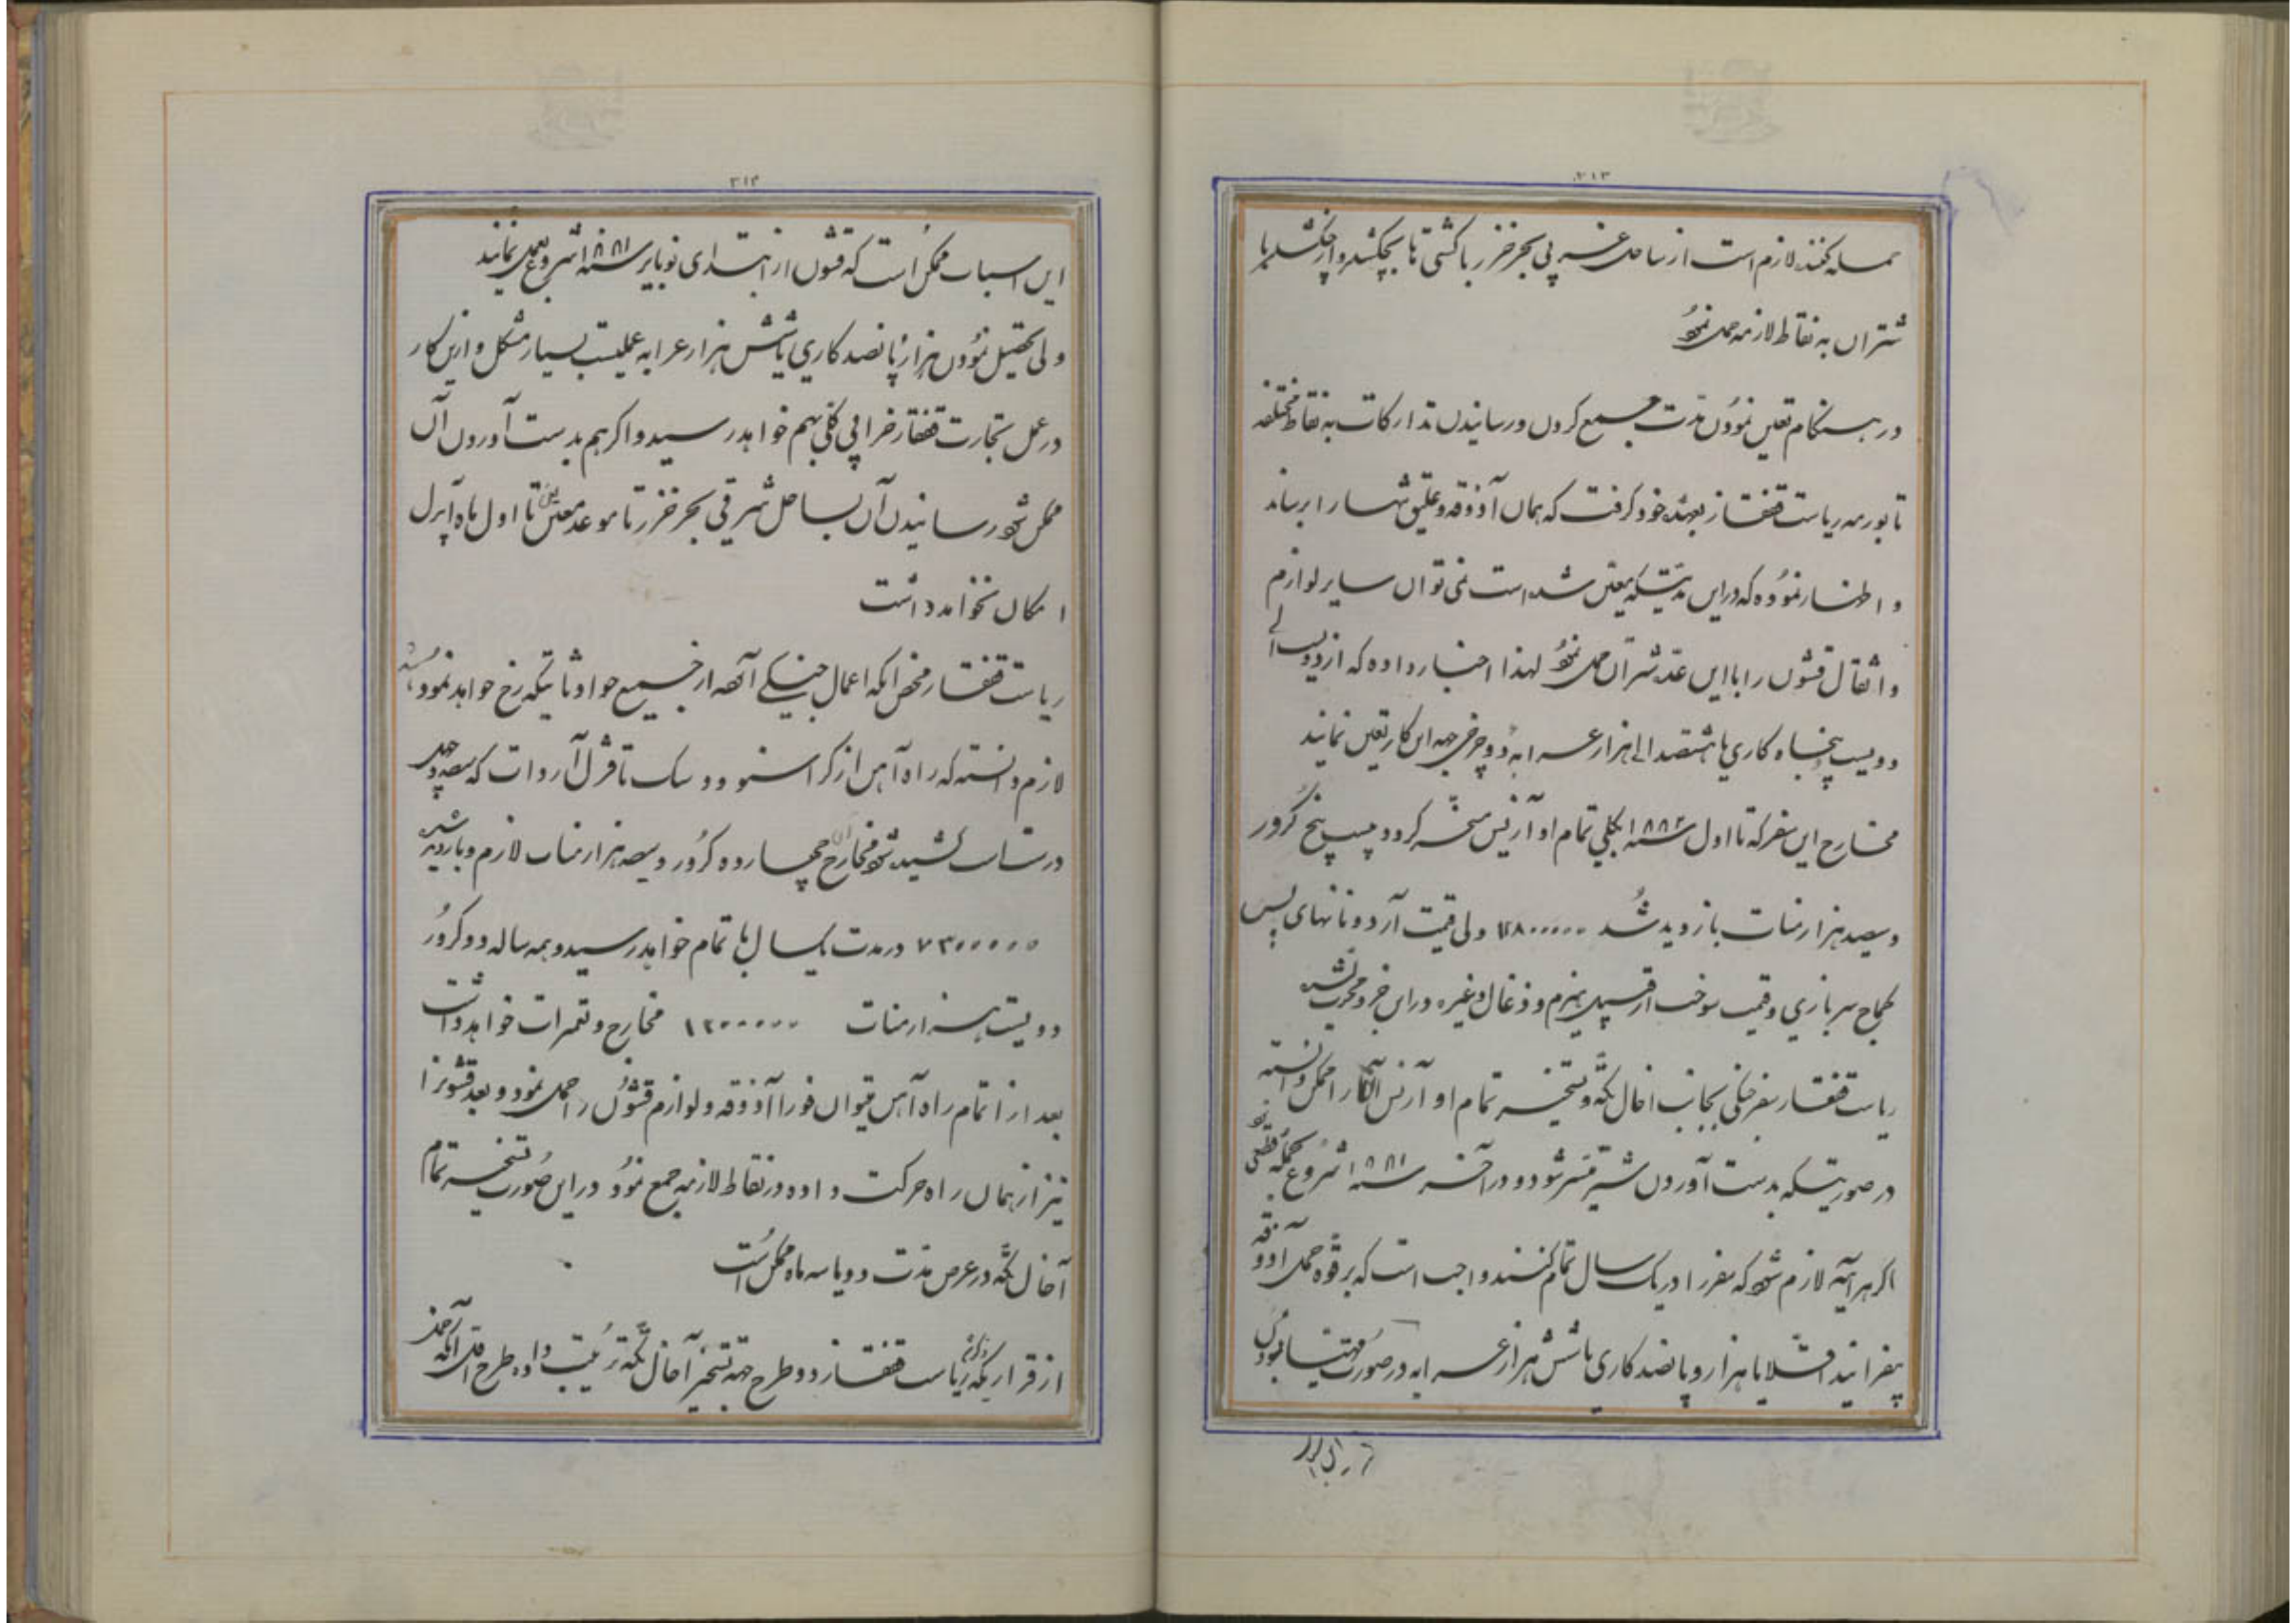 ۲۱۳
حمله کنند لازم است از ساحل غربی بحر خزر با کشتی تا بچکشلر و از چکشلر با
شتران به نقاط لازمه حمل نمود
در هنگام تعین نمودن مدت جمیع کردن و رسانیدن تدارکات به نقاط مختلفه
تا بورمه ریاست قفقاز بعهده خود گرفت که همان آذوقه و علیق تنها را برساند
و اظهار نموده که در این مدتیکه معین شده است نمی توان سایر لوازم
و اثقال قشون را با این عده شتران حمل نمود لهذا اخبار داده که از دویست الی
دویست پنجاه کاری یا هشتصد الی هزار عرابه دو چرخی جهه این کار تعین نمایند
مخارج این سفر که تا اول سنه ۱۸۸۲ بکلی تمام او آزیس مسخر گردد بیست پنج کرور
و سیصد هزار منات بازدید شد ولی قیمت آرد و نانهای
کماج سربازی و قیمت سوخت از قبیل هیزم و ذغال و غیره در این خرج محسوب نشده
ریاست قفقاز سفر جنگی بجانب اخال تکه و تسخیر تمام او آزیس آنجا را ممکن دانسته
در صورتیکه بدست آوردن شتر میسر شود و در آخر سنه ۱۸۸۱ شروع بحمله قطعی شود
اگر هر آینه لازم شود که سفر را در یک سال تمام کنند واجب است که بر قوه حمل آذوقه
بیفزایند اقلا یا هزار و پانصد کاری یا شش هزار عرابه در صورت مهیا نمودن
۲۱۴
این اسباب ممکن است که قشون از ابتدای نویابر سنه ۱۸۸۱ شروع بعمل نمایند
ولی تحصیل نمودن هزار و پانصد کاری یا شش هزار عرابه عملیست بسیار مشکل و از این کار
در عمل تجارت قفقاز خرابی کلی بهم خواهد رسید و اگر هم بدست آوردن آن
ممکن شود رسانیدن آن بساحل شرقی بحر خزر تا موعد معین تا اول ماه آپرل
امکان نخواهد داشت
ریاست قفقاز محض اینکه اعمال جنگی آنها از جمیع حوادثاتیکه رخ خواهد نمود
لازم دانسته که راه آهن از کراسنووودسک تا قزل آروات که سیصد و چهل
درستاست کشیده شود مخارج آن چهارده کرور و سیصد هزار منات لازم و بازدید شده
۷۳۰۰۰۰۰ در مدت یکسال بنا تمام خواهد رسید و همه ساله دو کرور
دویست هزار منات ۱۲۰۰۰۰۰ مخارج و تعمیرات خواهد داشت
بعد از اتمام راه آهن میتوان فورا آذوقه و لوازم قشون را حمل نمود و بعد قشونرا
نیز از همان راه حرکت داده در نقاط لازمه جمع نمود در این صورت تسخیر تمام
آخال تکه در عرض مدت دو یا سه ماه ممکن است
از قراریکه ذکر شد ریاست قفقاز دو طرح جهة تسخیر آخال تکه ترتیب داده طرح اول آنکه